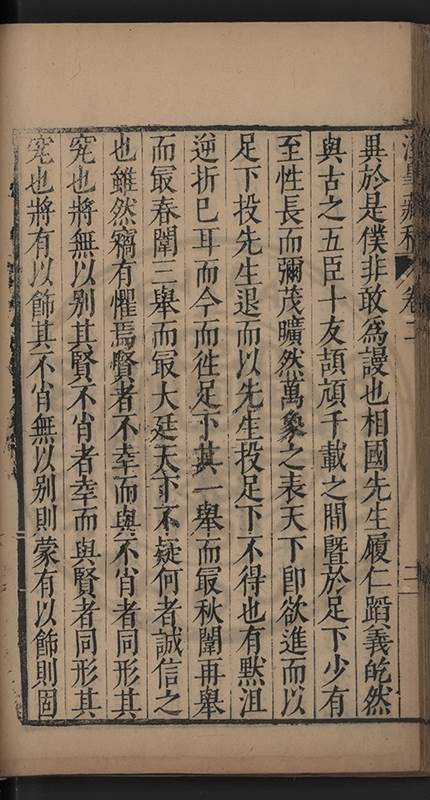 卷二
異於是僕非敢為謾也相國先生履仁蹈義屹然
與古之五臣十友頡頏千載之間曁於足下少有
至性長而彌茂曠然萬象之表天下卽欲進而以
足下投先生退而以先生投足下不得也有默沮
逆折已耳而今而徃足下其一舉而冣秋闈再舉
而冣春闈三舉而冣大廷天下不疑何者誠信之
也雖然竊有懼焉賢者不幸而與不肖者同形其
究也將無以別其賢不肖者幸而與賢者同形其
究也將有以飾其不肖無以別則蒙有以飾則固